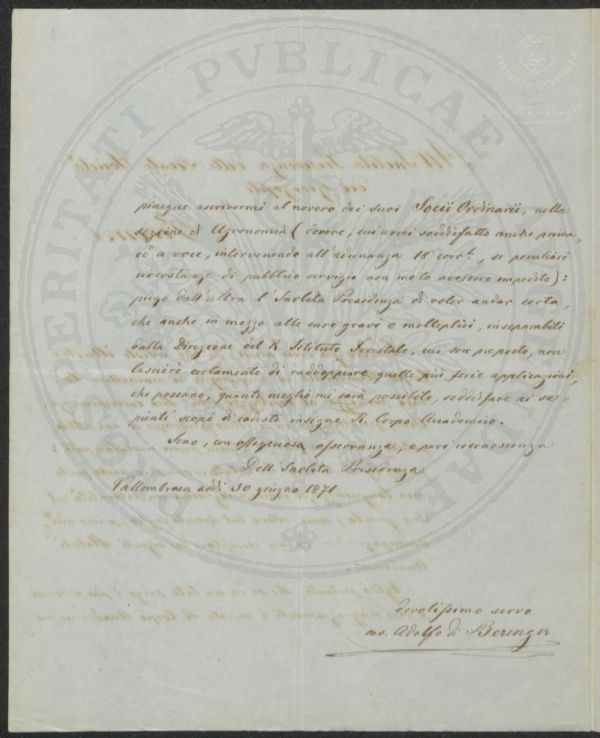 PROSPERITATI PVBLICAE AVGENDAE
piacque ascrivermi al novero dei suoi Socii Ordinarii, nella
sezione di Agronomia (dovere, cui avrei soddisfatto anche prima,
ed a voce, intervenendo all'adunanza 18 corr.te, se peculiari
circostanze di pubblico servizio non me lo avessero impedito):
prego dall'altra l'Inclita Presidenza di voler andar certa,
che anche in mezzo alle cure gravi e molteplici, inseparabili
dalla Direzione del R. Istituto Forestale, cui son preposto, non
lascierò certamente di raddoppiare quelle più serie applicazioni,
che possano, quanto meglio mi sarà possibile, soddisfare ai sa-
pienti scopi di codesto insigne R. Corpo Accademico.
Sono, con ossequiosa osservanza, e pari riconoscenza
Dell'Inclita Presidenza
Vallombrosa addì 30 giugno 1871
devotissimo servo
cav. Adolfo di Berenger